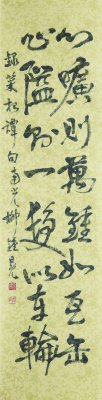 心曠則萬鍾如瓦缶
心隘則一髮似車輪
錄菜根譚句